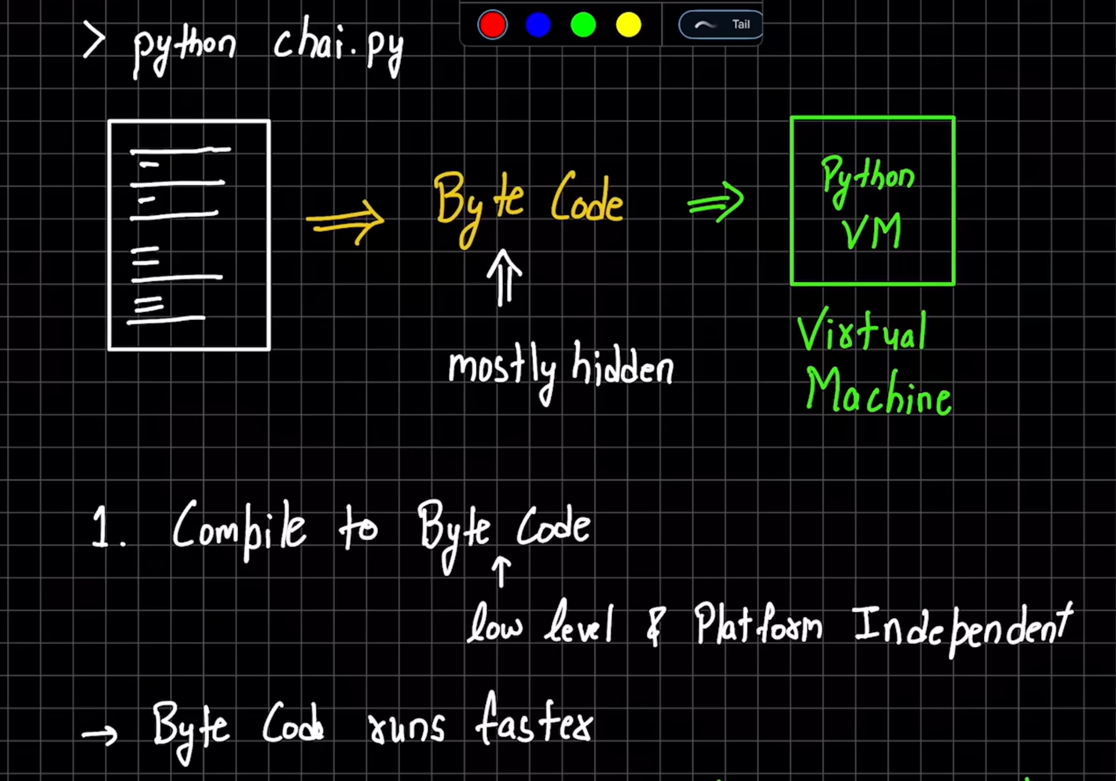 > python chai.py
Tail
Byte Code
Python
VM
mostly hidden
Virtual
Machine
1. Compile to Byte Code
low level & Platform Independent
→ Byte Code runs faster